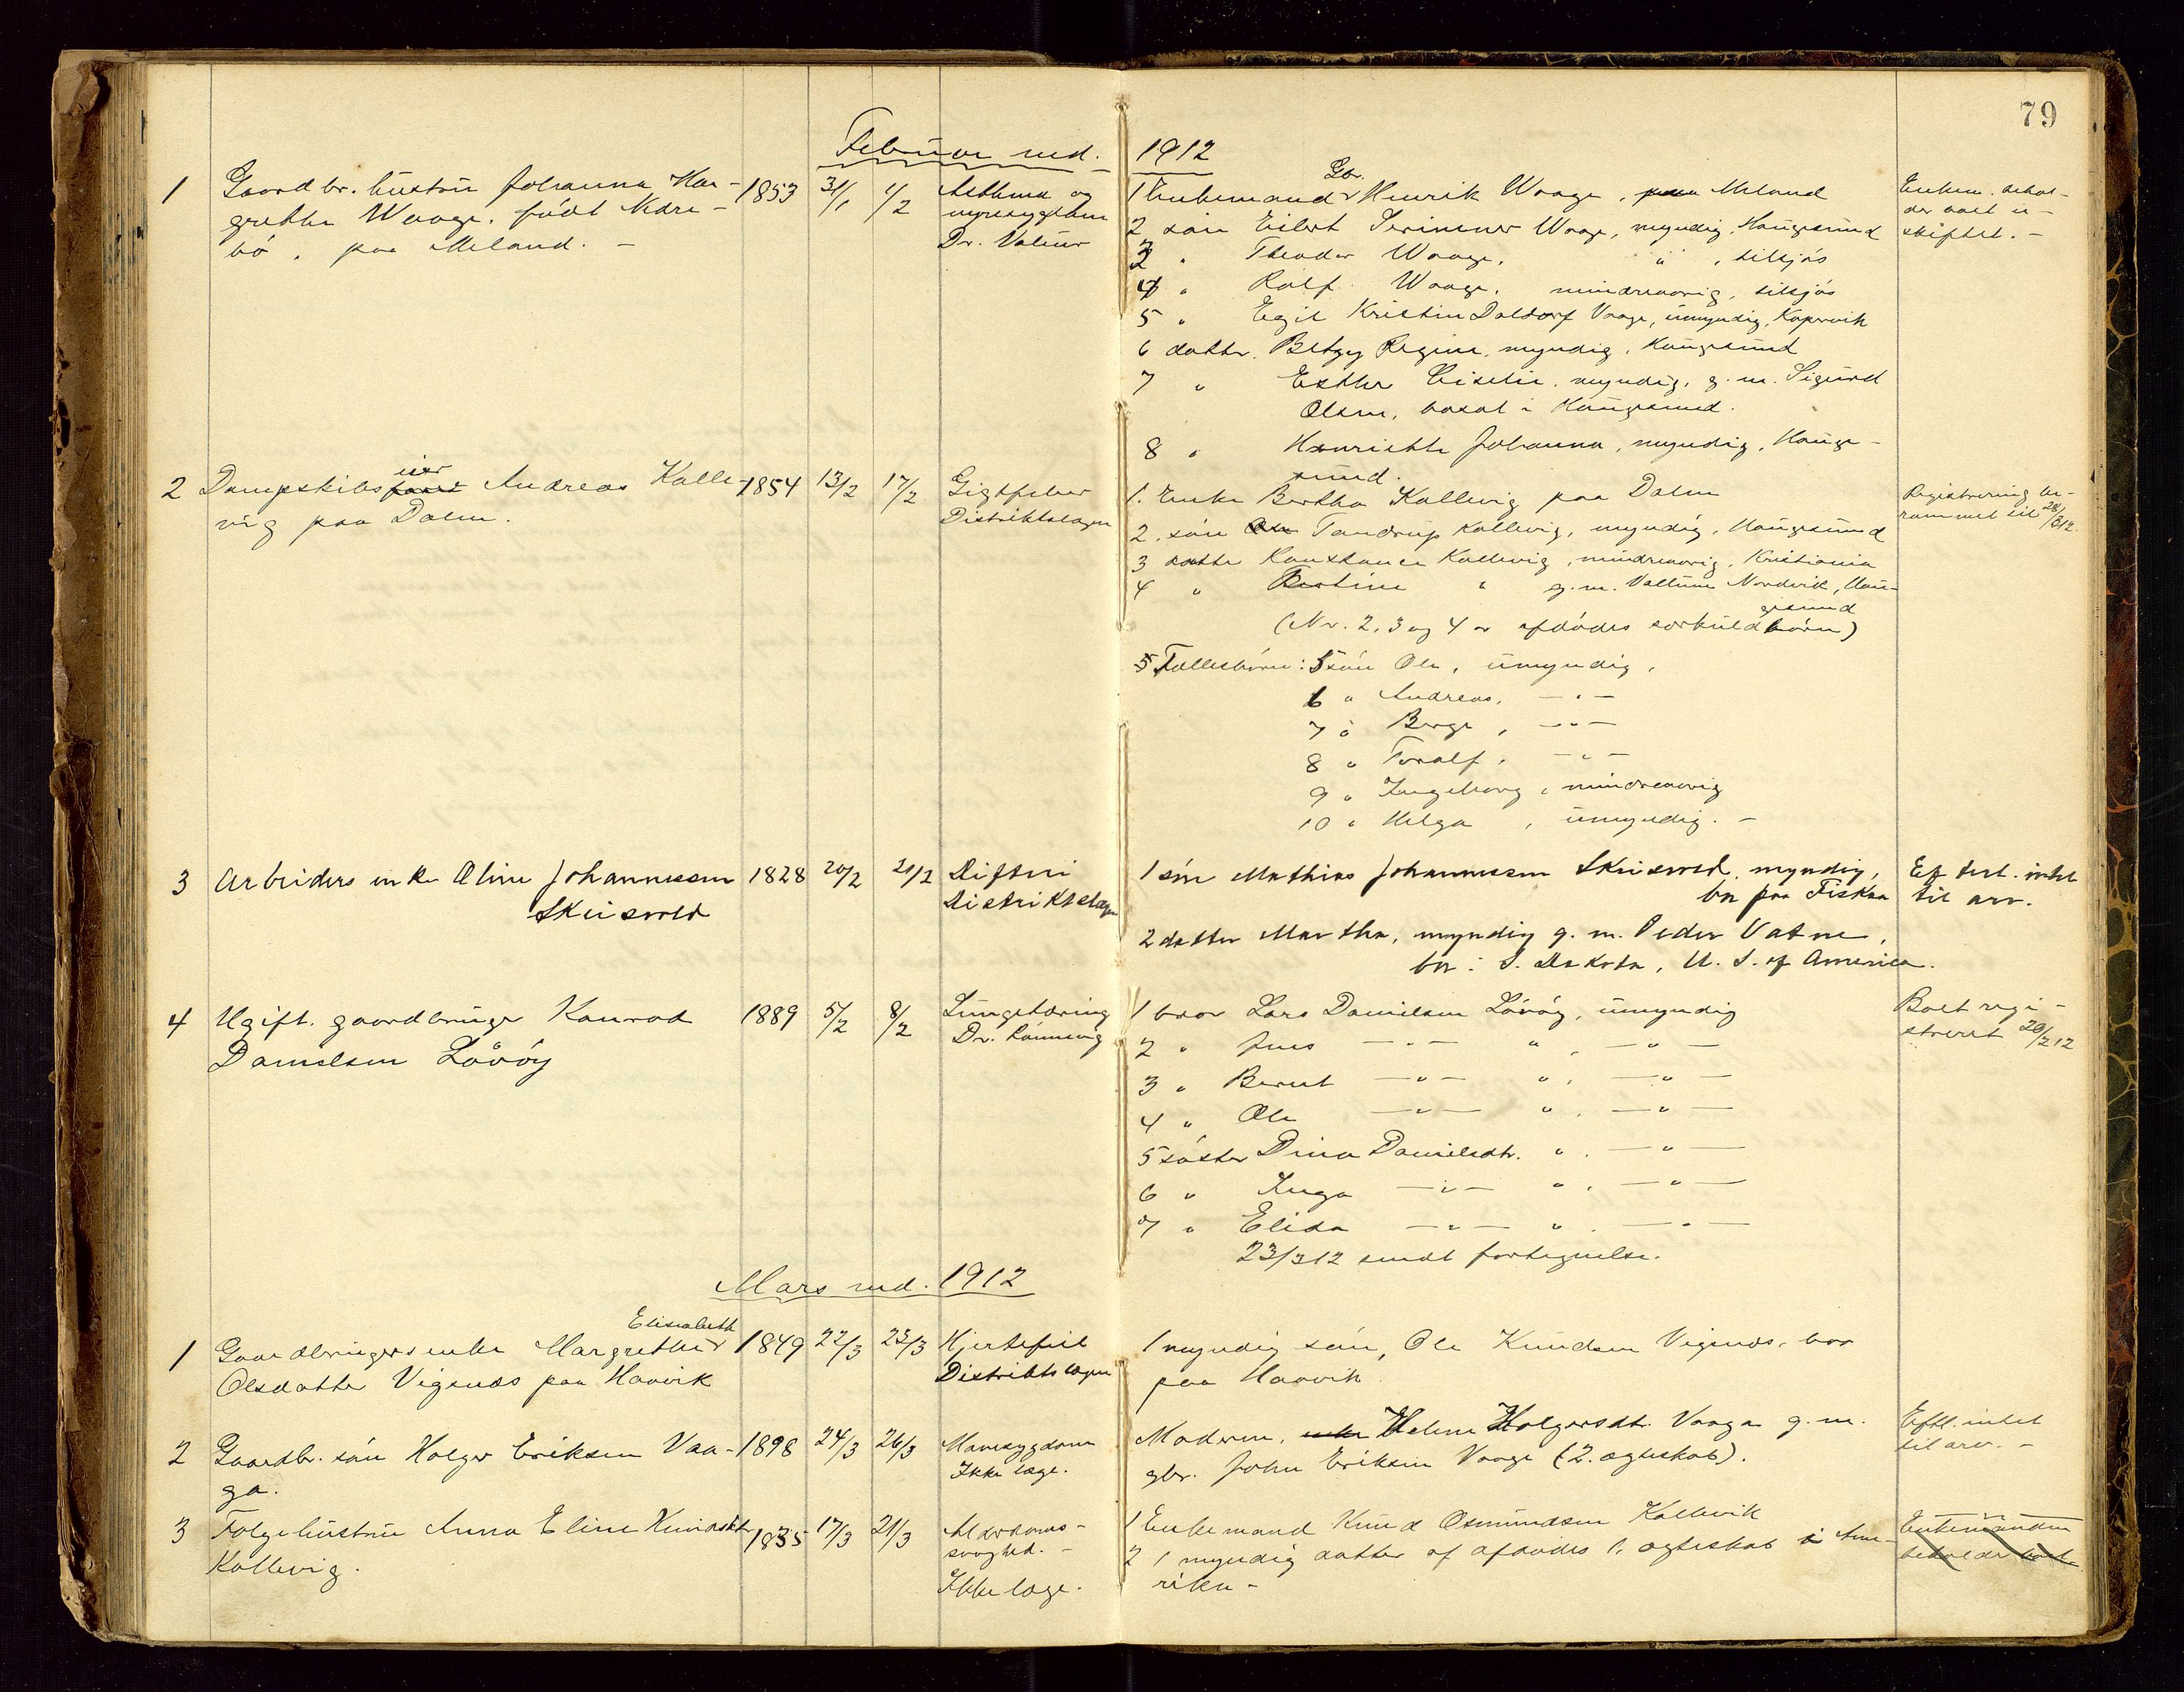 79
Februar md. 1912
1 Gaardbr. hustru Johanna Mar- 1853 31/1 4/2 Asthma og
grethe Waage, født Nedre- nyresygdom
bø, paa Meland. - Dr. Valeur
Gbr.
1 Enkemand Henrik Waage, paa Meland
2 søn Eilert Severinsen Waage, myndig, Haugesund
3 " Theodor Waage, " , tilsjøs
4 " Rolf Waage, mindreaarig, tilsjøs
5 " Egil Kristian Daldorf Vaage, umyndig, Kopervik
6 datter Betzy Regine, myndig, Haugesund
7 " Esther Ciselie, myndig, g. m. Sigurd
Olsen, bosat i Haugesund.
8 " Henriette Johanna, myndig, Hauge-
sund.
Enkem. behol-
der boet u-
skiftet. -
eier
2 Dampskibsfører Andreas Kalle- 1854 13/2 17/2 Gigtfeber
vig paa Dalen. Distriktslægen
1. Enke Bertha Kallevig paa Dalen
2. søn Tandrup Kallevig, myndig, Haugesund
3 datter Konstance Kallevig, mindreaarig, Kristiania
4 " Bertine " g. m. Valtine Nordvik, Hau-
gesund
(Nr. 2, 3 og 4 er afdødes særkuldbørn)
5 Fællesbørn: 5 søn Ole, umyndig,
6 " Andreas, - " -
7 " Berge, - " -
8 " Toralf, - " -
9 " Ingeborg, mindreaarig
10 " Helga, umyndig. -
Registrering be-
rammet til 28/3 12.
3 Arbeiders enke Oline Johannessen 1828 20/2 21/2 Difteri
Skeisvold Distriktslægen
1 søn Mathias Johannessen Skeisvold, myndig,
bor paa Fiskaa
2 datter Martha, myndig g. m. Peder Vatne,
bor: S. Dakota, U. S. of America.
Eft. intet
til arv.
4 Ugift. gaardbruger Konrad 1889 5/2 8/2 Lungetæring
Danielsen Løvøy Dr. Rønnevig
1 bror Lars Danielsen Løvøy, umyndig
2 " Jens - " - " , - " -
3 " Bernt - " - " , - " -
4 " Ole - " - " , - " -
5 søster Dina Danielsdtr. " , - " -
6 " Inga - " - " , - " -
7 " Elida - " - " , - " -
23/3 12 sendt fortegnelse.
Boet regi-
streret 20/2 12
Mars md. 1912
Elisabeth
1 Gaardbrugers enke Margrethe 1849 22/3 23/3 Hjertefeil
Olsdatter Vigenæs paa Haavik Distriktslægen
1 myndig søn, Ole Knudsen Vigenæs, bor
paa Haavik
2 Gaardbr. søn Holger Eriksen Vaa- 1898 24/3 26/3 Mavesygdom
ga. Ikke læge.
Moderen, enke Helene Holgersdtr. Vaaga g. m.
gbr. John Eriksen Vaage (2. ægteskab).
Eftl. intet
til arv. -
3 Følgehustru Anna Eline Knudsdtr. 1835 17/3 21/3 Alderdoms-
Kallevig. svaghed. -
Ikke læge.
1 Enkemand Knud Osmundsen Kallevik
2 1 myndig datter af afdødes 1. ægteskab i Ame-
rika -
Enkemanden
beholder boet